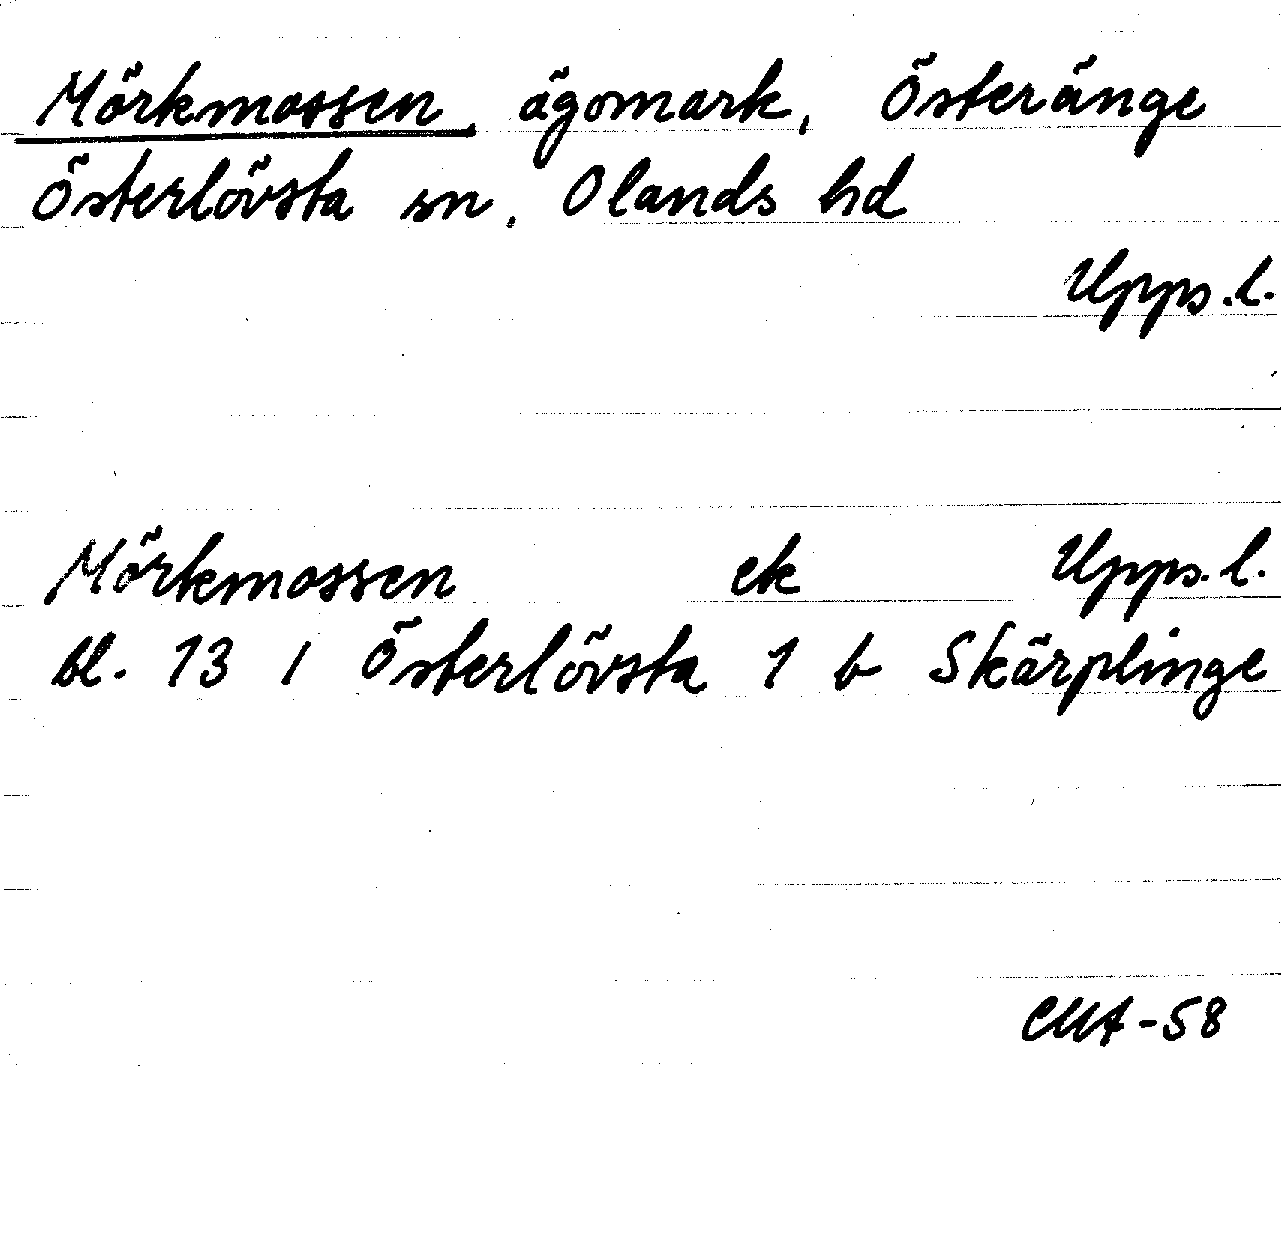 Mörkmossen, ägomark, Österänge
Österlövsta sn, Olands hd
Upps.l.
Mörkmossen ek Upps.l.
bl. 13 / Österlövsta 1 b Skärplinge
CMA-58